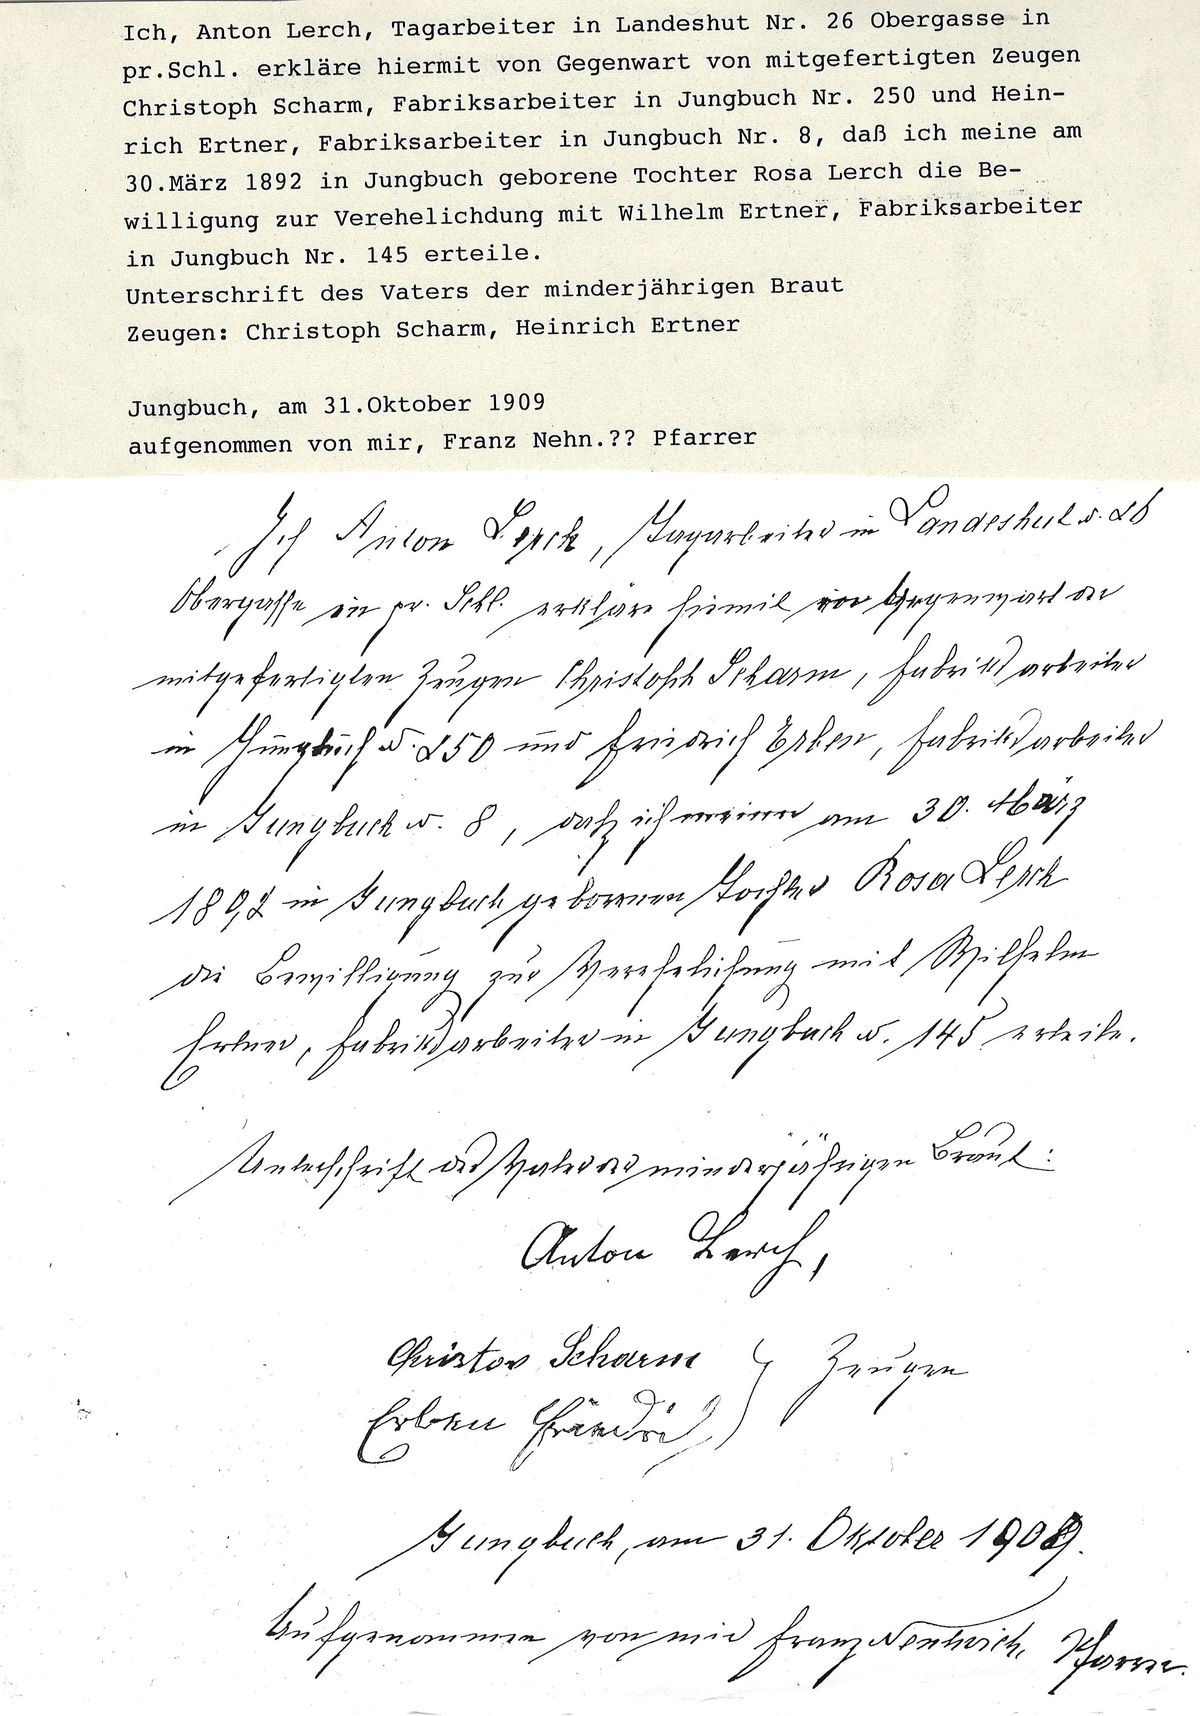 Ich, Anton Lerch, Tagarbeiter in Landeshut Nr. 26 Obergasse in
pr.Schl. erkläre hiermit von Gegenwart von mitgefertigten Zeugen
Christoph Scharm, Fabriksarbeiter in Jungbuch Nr. 250 und Hein-
rich Ertner, Fabriksarbeiter in Jungbuch Nr. 8, daß ich meine am
30.März 1892 in Jungbuch geborene Tochter Rosa Lerch die Be-
willigung zur Verehelichdung mit Wilhelm Ertner, Fabriksarbeiter
in Jungbuch Nr. 145 erteile.
Unterschrift des Vaters der minderjährigen Braut
Zeugen: Christoph Scharm, Heinrich Ertner
Jungbuch, am 31.Oktober 1909
aufgenommen von mir, Franz Nehn.?? Pfarrer
Ich Anton Lerch, Tagarbeiter in Landeshut N. 26
Obergasse in pr. Schl. erkläre hiemit vor Gegenwart der
mitgefertigten Zeugen Christoph Scharm, Fabriksarbeiter
in Jungbuch N. 250 und Friedrich Erben, Fabriksarbeiter
in Jungbuch N. 8, daß ich meiner am 30. März
1892 in Jungbuch geborenen Tochter Rosa Lerch
die Bewilligung zur Verehelichung mit Wilhelm
Erbner, Fabriksarbeiter in Jungbuch N. 145 erteile.
Unterschrift des Vaters der minderjährigen Braut:
Anton Lerch,
Christov Scharm } Zeugen
Erben Friedrich
Jungbuch, am 31. Oktober 1909.
Aufgenommen von mir Franz Pfarrer.